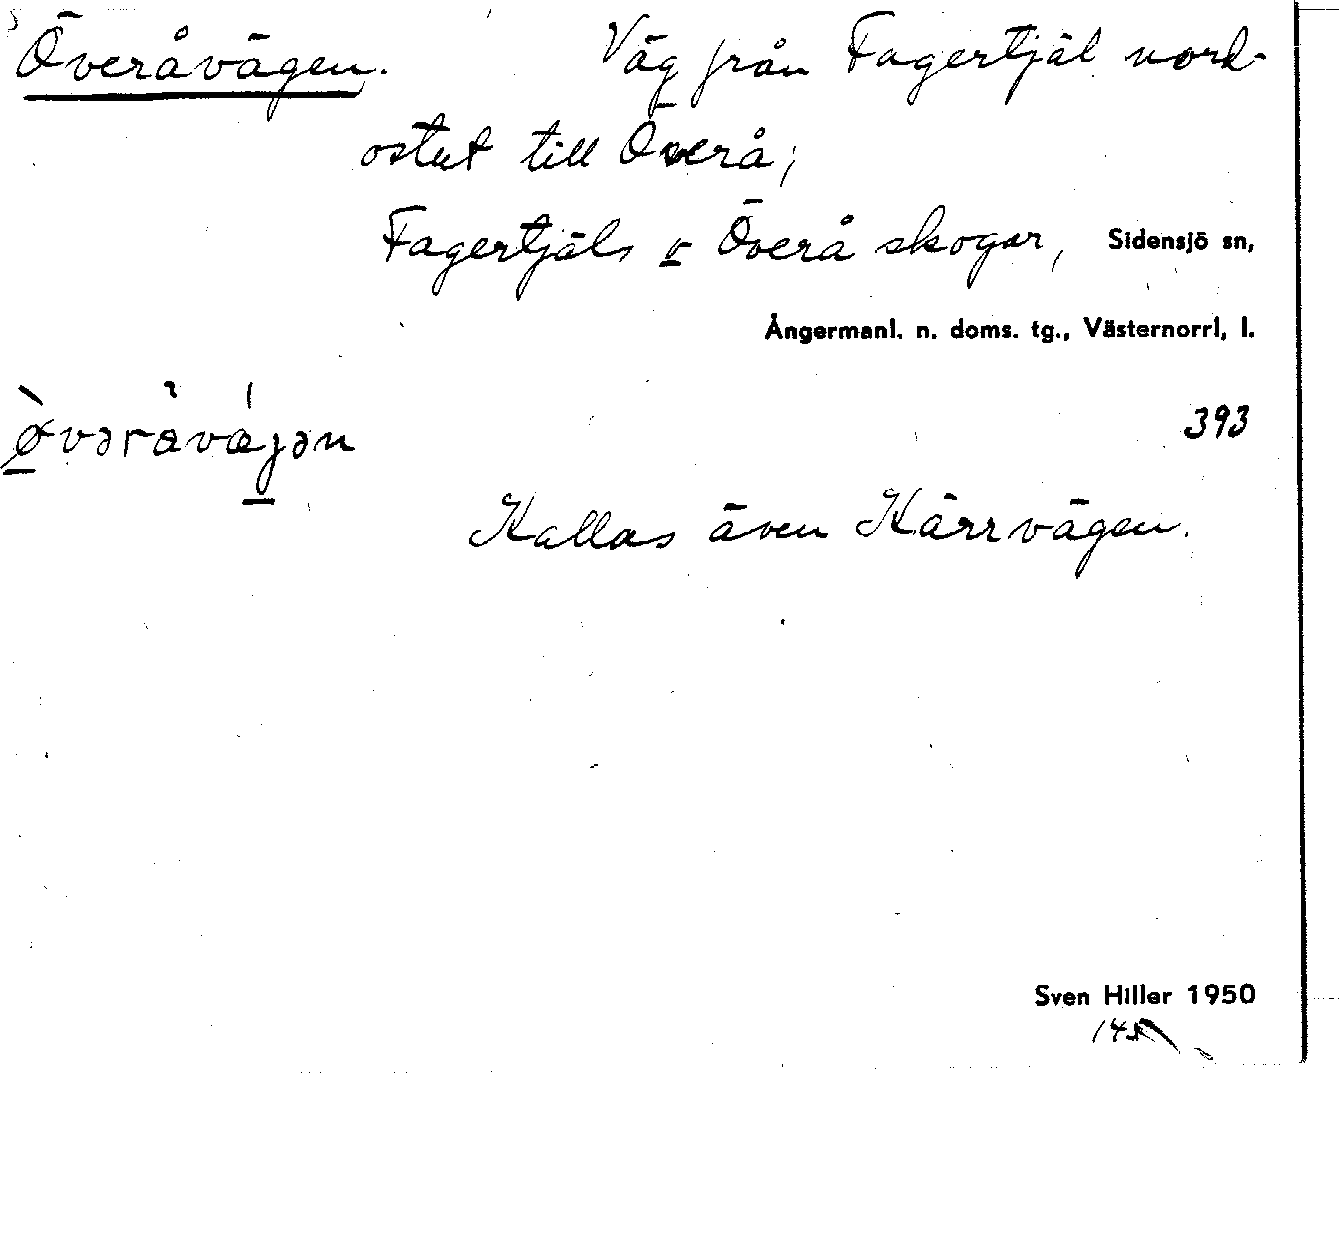 Överåvägen. Väg från Fagertjäl nord-
ostut till Överå;
Fagertjäls o Överå skogar, Sidensjö sn,
Ångermanl. n. doms. tg., Västernorrl. l.
393
Kallas även Kärrvägen.
Sven Hiller 1950